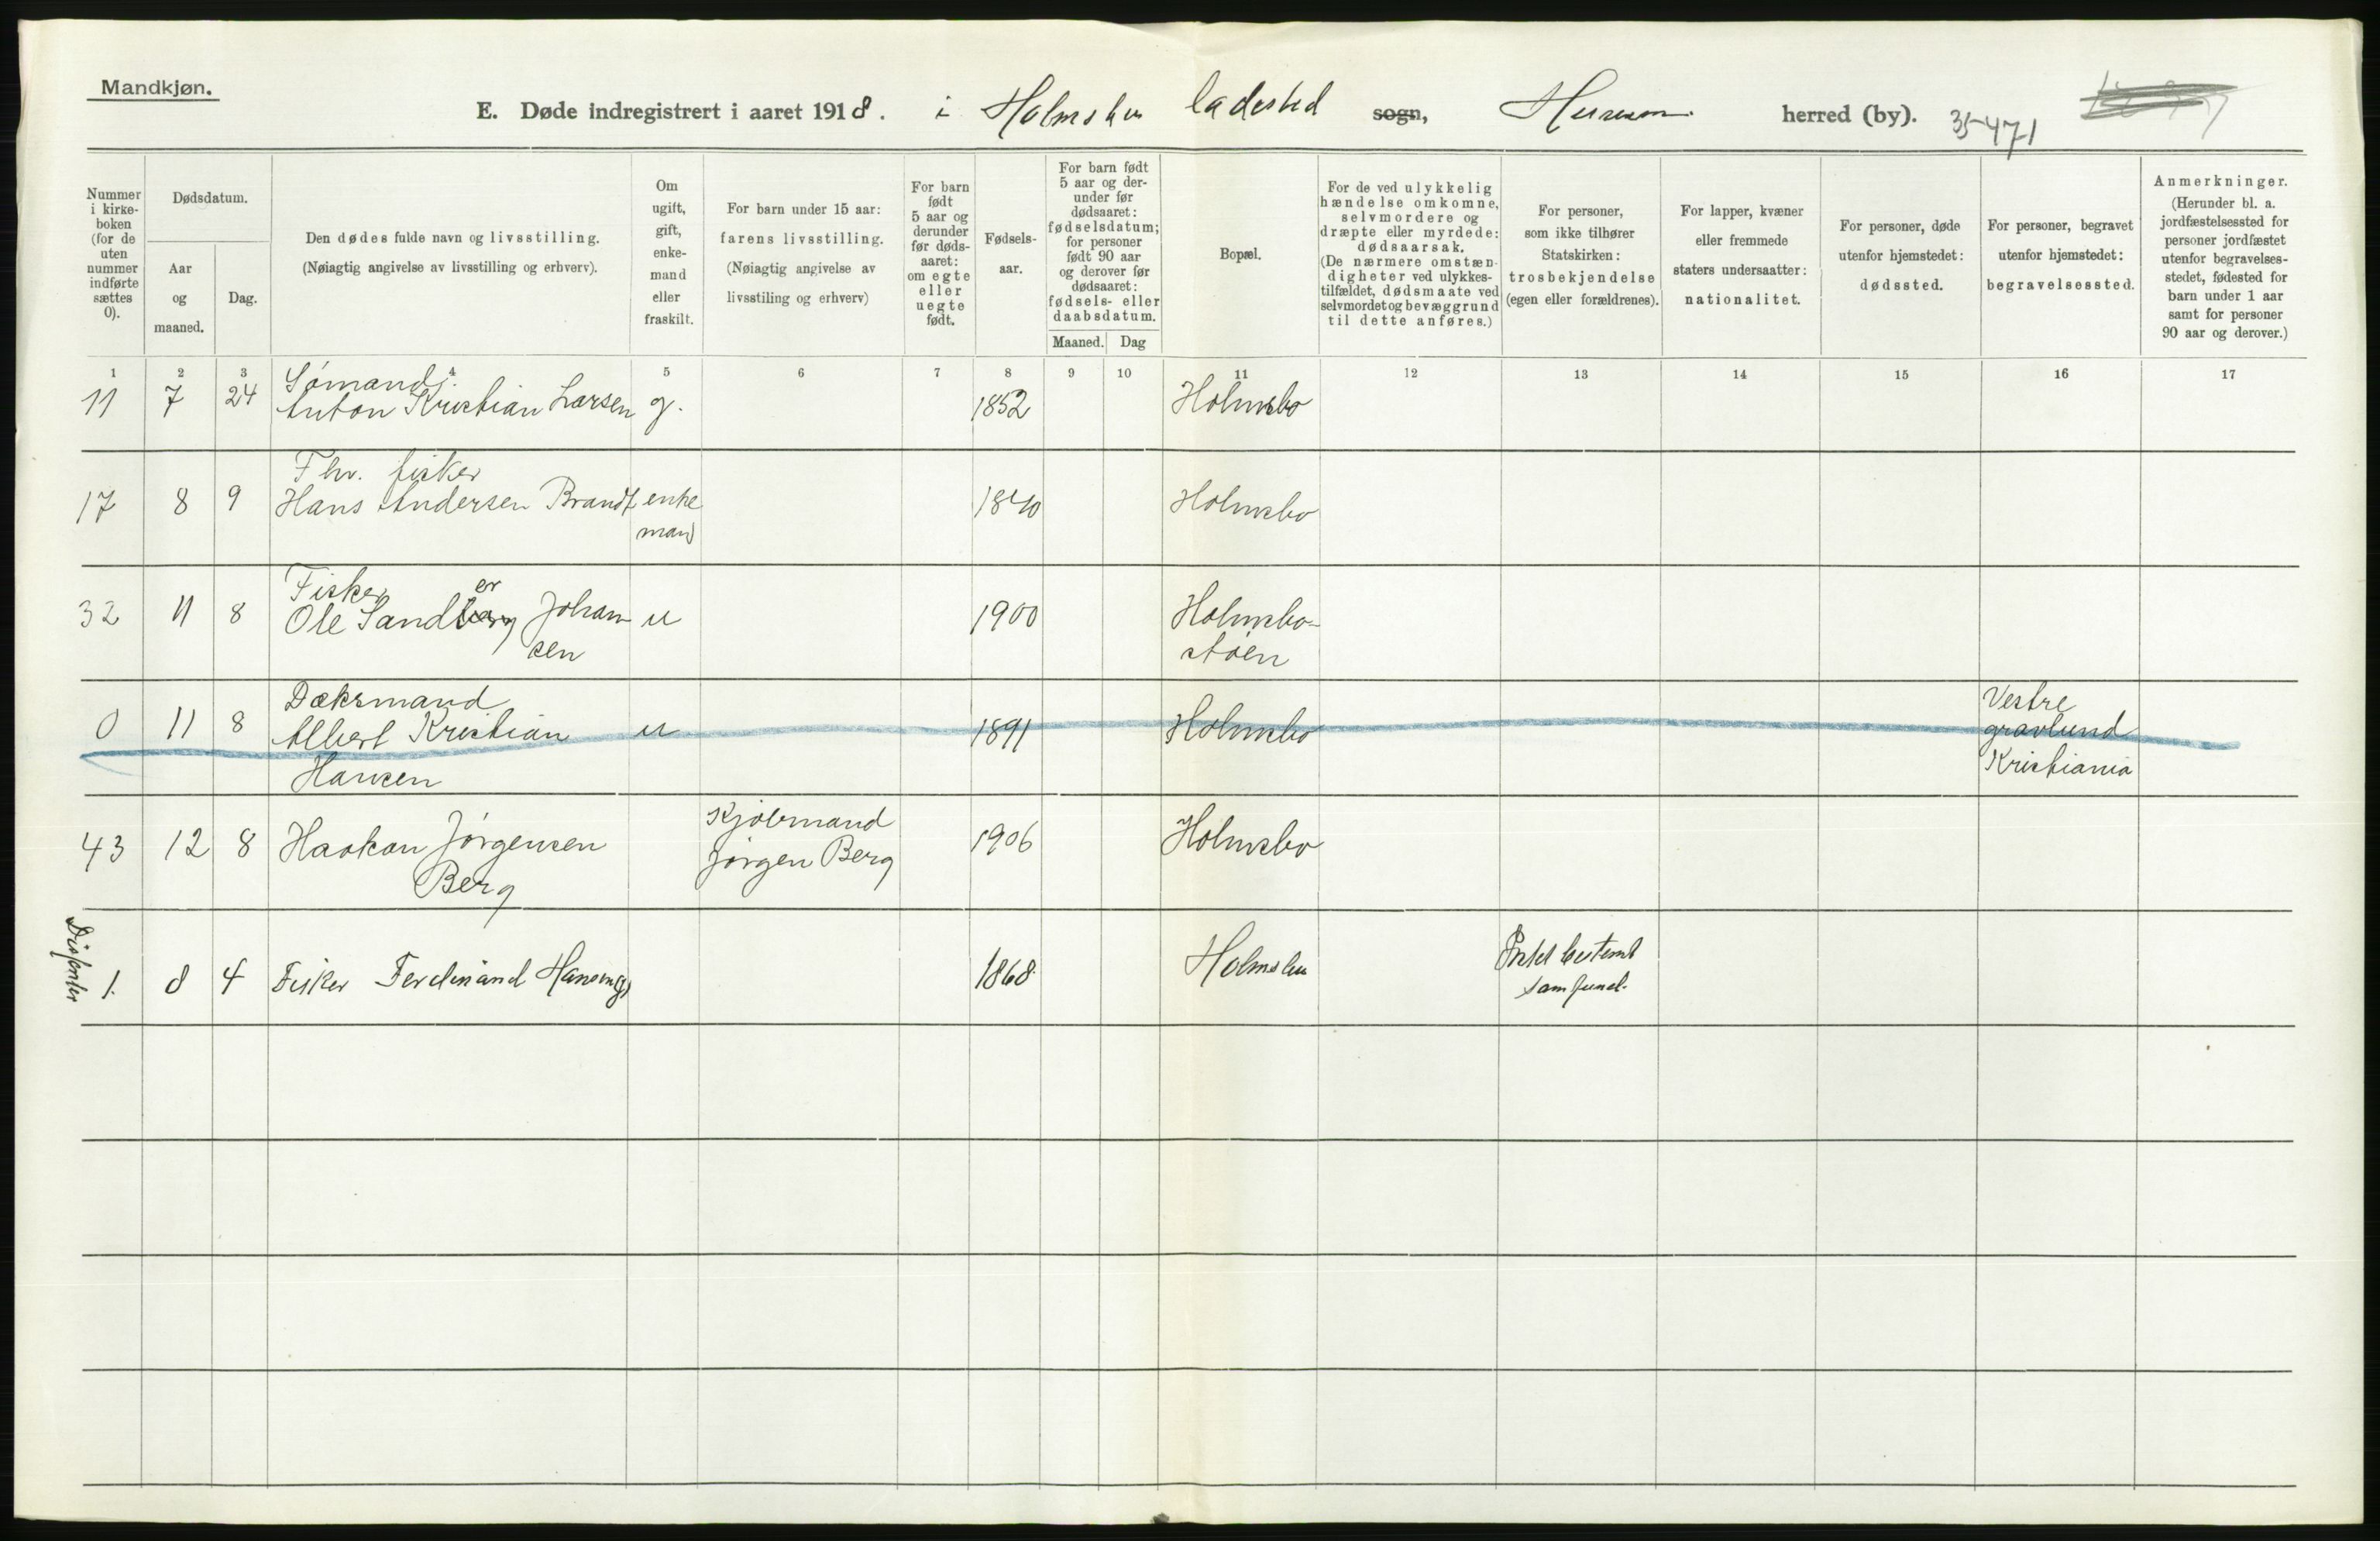 Mandkjøn.
E. Døde indregistrert i aaret 1918. i Holmsbu ladested sogn, Hurum. herred (by). 35-471
Nummer i kirke-boken (for de uten nummer indførte sættes 0).
Dødsdatum.
Aar og maaned.
Dag.
Den dødes fulde navn og livsstilling.
(Nøiagtig angivelse av livsstilling og erhverv).
Om ugift, gift, enke-mand eller fraskilt.
For barn under 15 aar:
farens livsstilling.
(Nøiagtig angivelse av
livsstiling og erhverv)
For barn født 5 aar og derunder før døds-aaret: om egte eller uegte født.
Fødsels-aar.
For barn født 5 aar og der-under før dødsaaret: fødselsdatum; for personer født 90 aar og derover før dødsaaret: fødsels- eller daabsdatum.
Maaned. Dag
Bopæl.
For de ved ulykkelig hændelse omkomne, selvmordere og dræpte eller myrdede: dødsaarsak. (De nærmere omstæn-digheter ved ulykkes-tilfældet, dødsmaate ved selvmordet og bevæggrund til dette anføres.)
For personer, som ikke tilhører Statskirken: trosbekjendelse (egen eller forældrenes).
For lapper, kvæner eller fremmede staters undersaatter: nationalitet.
For personer, døde utenfor hjemstedet: dødssted.
For personer, begravet utenfor hjemstedet: begravelsessted.
Anmerkninger. (Herunder bl. a. jordfæstelsessted for personer jordfæstet utenfor begravelses-stedet, fødested for barn under 1 aar samt for personer 90 aar og derover.)
1 2 3 4 5 6 7 8 9 10 11 12 13 14 15 16 17
Sómand
11 7 24 Anton Kristian Larsen g. 1852 Holmsbo
Fhv. fisker
17 8 9 Hans Andersen Brandt enke 1840 Holmsbo
mand
Fisker er
32 11 8 Ole Sandberg Johan u 1900 Holmsbo-
sen støen
Dæksmand Vestre
0 11 8 Albert Kristian u 1891 Holmsbo gravlund
Hansen Kristiania
Kjøbmand
43 12 8 Haakon Jórgensen Jórgen Berg 1906 Holmsbo
Berg
Dissenter
1. 8 4 Fisker Ferdinand Hansen g) 1868 Holmsbu Intet bestemt
samfund.